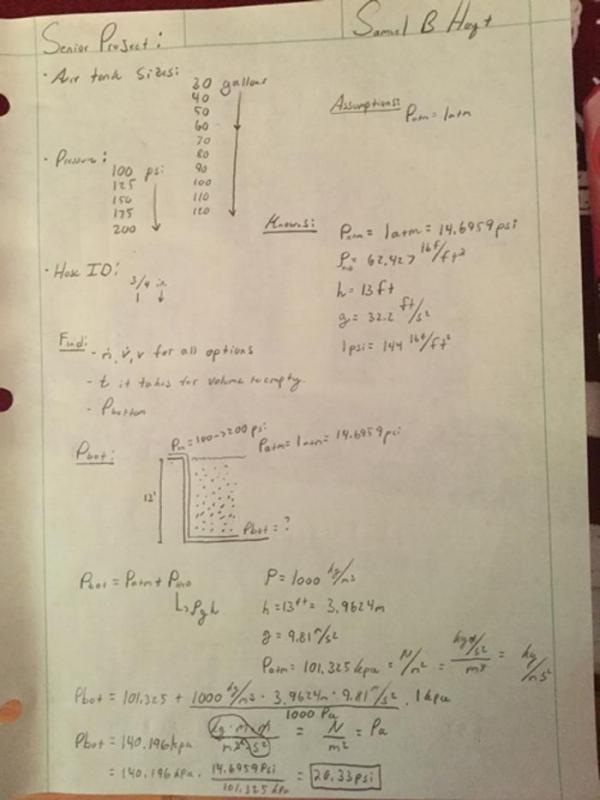 Senior Project:
Samuel B Hoyt
• Air tank sizes:
30 gallons
40
50
60
70
80
90
100
110
120
Assumptions:
Patm = 1atm
• Pressure:
100 psi
125
150
175
200
Knowns:
Patm = 1atm = 14.6959 psi
ρH2O = 62.427 lbf/ft³
h = 13 ft
g = 32.2 ft/s²
1 psi = 144 lbf/ft²
• Hose ID:
3/4 in
1 ↓
Find:
- ṁ, v̇, v for all options
- t it takes for volume to empty.
- Pbottom
Pbot:
Pin = 100->200 psi
Patm = 1atm = 14.6959 psi
12'
Pbot = ?
Pbot = Patm + PH2O
↳ ρgh
ρ = 1000 kg/m³
h = 13 ft = 3.9624m
g = 9.81 m/s²
Patm = 101.325 kpa = N/m² = kg m/s² / m² = kg/ms²
Pbot = 101.325 + 1000 kg/m³ · 3.9624m · 9.81 m/s² / 1000 Pa · 1 kpa
Pbot = 140.196 kpa
kg · m · m / m³ s² = N/m² = Pa
= 140.196 kPa · 14.6959 Psi / 101.325 kPa = 20.33 psi